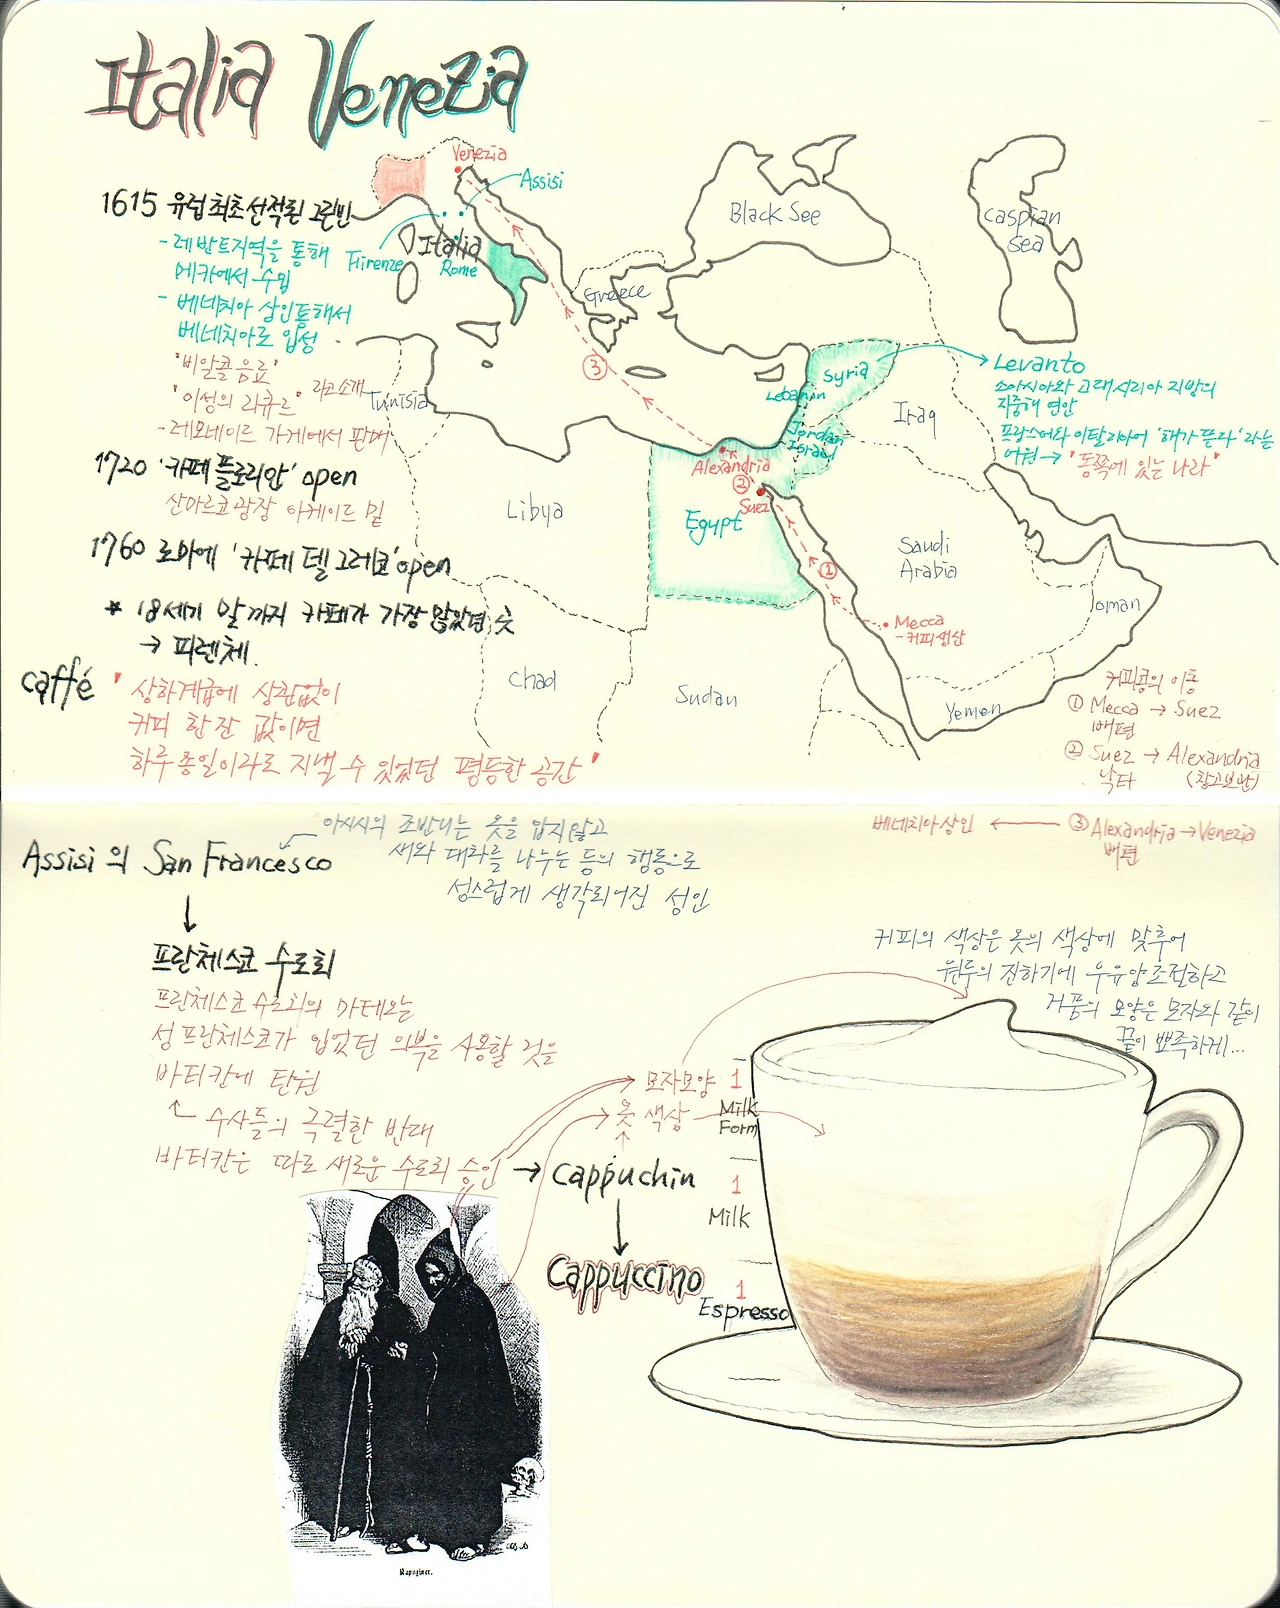 Italia Venezia
1615 유럽최초선적된 그린빈
- 레반트지역을 통해
메카에서 수입
- 베네치아 상인통해서
베네치아로 입성
"비알콜음료"
"이성의 리큐르" 라고소개
- 레모네이드 가게에서 판매
1720 '카페 플로리안' open
산마르코광장 아케이드 밑
1760 로마에 '카페 델 그레코' open
* 18세기 말까지 카페가 가장 많았던 곳
→ 피렌체.
caffé "상하계급에 상관없이
커피 한잔 값이면
하루종일이라도 지낼 수 있었던 평등한 공간"
Venezia
Assisi
Firenze
Italia
Rome
Greece
Black See
caspian
sea
Tunisia
Libya
Chad
Sudan
Egypt
Alexandria
Suez
①
②
③
Syria
Lebanon
Jordan
Israel
Iraq
Saudi
Arabia
Oman
Yemen
Mecca
- 커피생산
Levanto
소아시아와 고대시리아 지방의
지중해 연안
프랑스어와 이탈리아어 '해가 뜬다'라는
어원 → "동쪽에 있는 나라"
커피콩의 이동
① Mecca → Suez
배편
② Suez → Alexandria
낙타 (창고보관)
③ Alexandria → Venezia
배편
베네치아상인
Assisi 의 San Francesco
아시시의 조반니는 옷을 입지않고
새와 대화를 나누는 등의 행동으로
성스럽게 생각되어진 성인
프란체스코 수도회
프란체스코 수도회의 마테오는
성 프란체스코가 입었던 의복을 사용할 것을
바티칸에 탄원
수사들의 극렬한 반대
바티칸은 따로 새로운 수도회 승인 → Cappuchin
모자모양
옷 색상
Cappuccino
커피의 색상은 옷의 색상에 맞추어
원두의 진하기에 우유양조절하고
거품의 모양은 모자와 같이
끝이 뾰족하게...
1
Milk
Form
1
Milk
1
Espresso
Kapuziner.